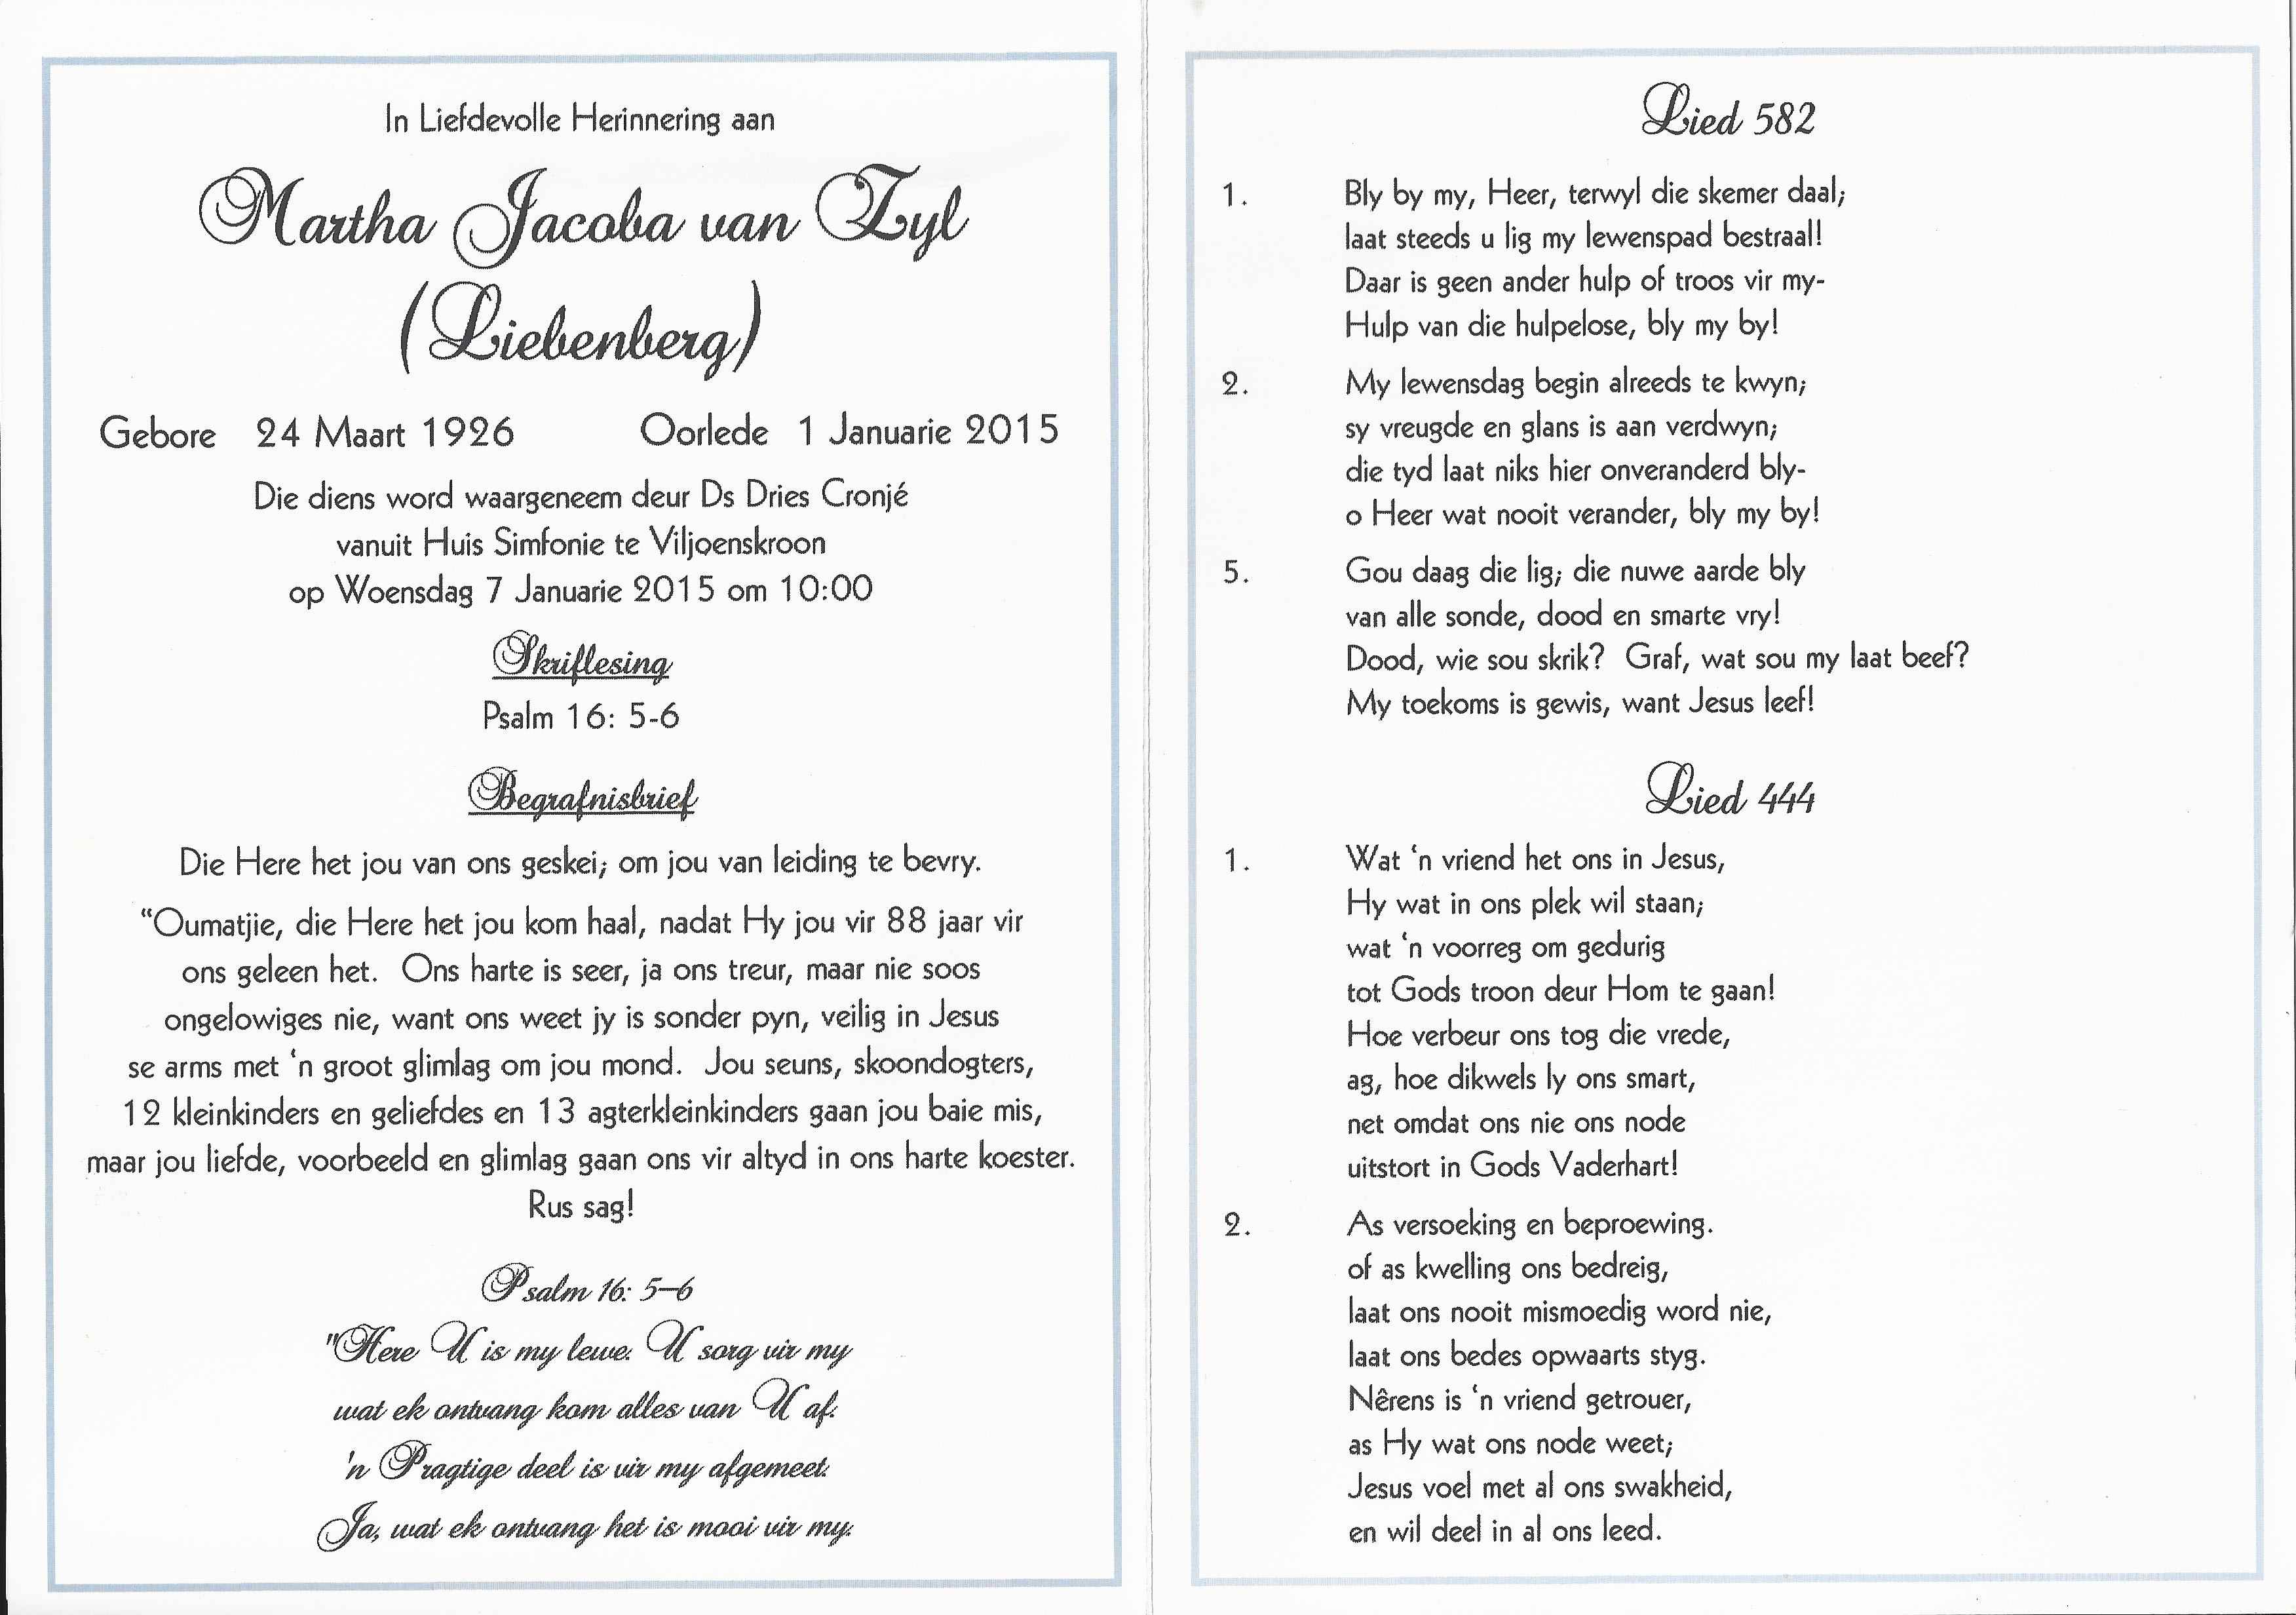 In Liefdevolle Herinnering aan
Martha Jacoba van Zyl
(Liebenberg)
Gebore 24 Maart 1926 Oorlede 1 Januarie 2015
Die diens word waargeneem deur Ds Dries Cronjé
vanuit Huis Simfonie te Viljoenskroon
op Woensdag 7 Januarie 2015 om 10:00
Skriflesing
Psalm 16: 5-6
Begrafnisbrief
Die Here het jou van ons geskei; om jou van leiding te bevry.
“Oumatjie, die Here het jou kom haal, nadat Hy jou vir 88 jaar vir
ons geleen het. Ons harte is seer, ja ons treur, maar nie soos
ongelowiges nie, want ons weet jy is sonder pyn, veilig in Jesus
se arms met ‘n groot glimlag om jou mond. Jou seuns, skoondogters,
12 kleinkinders en geliefdes en 13 agterkleinkinders gaan jou baie mis,
maar jou liefde, voorbeeld en glimlag gaan ons vir altyd in ons harte koester.
Rus sag!
Psalm 16: 5–6
"Here U is my lewe. U sorg vir my
wat ek ontvang kom alles van U af.
'n Pragtige deel is vir my afgemeet.
Ja, wat ek ontvang het is mooi vir my.
Lied 582
1. Bly by my, Heer, terwyl die skemer daal;
laat steeds u lig my lewenspad bestraal!
Daar is geen ander hulp of troos vir my-
Hulp van die hulpelose, bly my by!
2. My lewensdag begin alreeds te kwyn;
sy vreugde en glans is aan verdwyn;
die tyd laat niks hier onveranderd bly-
o Heer wat nooit verander, bly my by!
5. Gou daag die lig; die nuwe aarde bly
van alle sonde, dood en smarte vry!
Dood, wie sou skrik? Graf, wat sou my laat beef?
My toekoms is gewis, want Jesus leef!
Lied 444
1. Wat ‘n vriend het ons in Jesus,
Hy wat in ons plek wil staan;
wat ‘n voorreg om gedurig
tot Gods troon deur Hom te gaan!
Hoe verbeur ons tog die vrede,
ag, hoe dikwels ly ons smart,
net omdat ons nie ons node
uitstort in Gods Vaderhart!
2. As versoeking en beproewing.
of as kwelling ons bedreig,
laat ons nooit mismoedig word nie,
laat ons bedes opwaarts styg.
Nêrens is ‘n vriend getrouer,
as Hy wat ons node weet;
Jesus voel met al ons swakheid,
en wil deel in al ons leed.